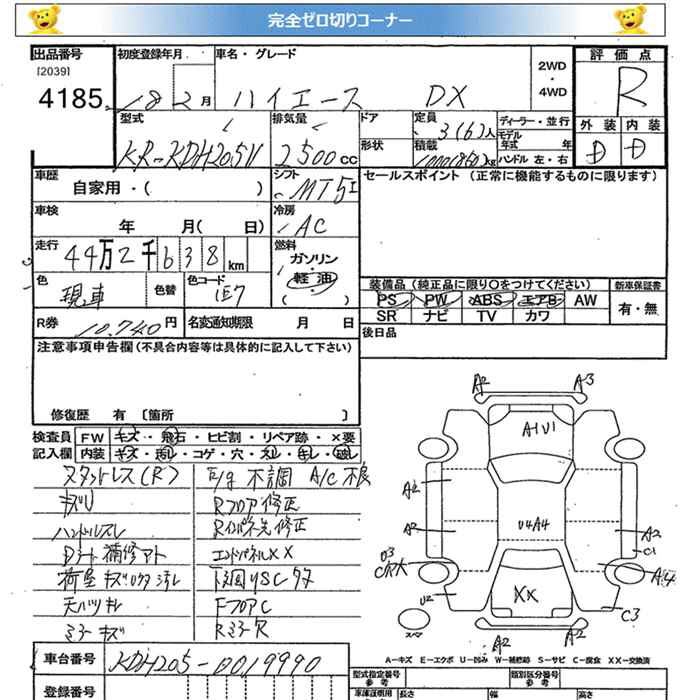 完全ゼロ切りコーナー
出品番号 初度登録年月 車名・グレード 評価点
[2039] 2WD・4WD
4185 18 2月 ハイエース DX R
型式 排気量 ドア 定員 3(6)人 ディーラー・並行 外装 内装
モデル年式 年
KR-KDH205V 2500cc 形状 積載 1000(850)kg ハンドル 左・右 D D
車歴 シフト セールスポイント (正常に機能するものに限ります)
自家用・( ) MT5
車検 冷房
年 月( 日) AC
走行 燃料
44万2千638km ガソリン
軽油
( )
色 色替 色コード 装備品 (純正品に限り○をつけてください) 新車保証書
現車 1E7 PS PW ABS エアB AW 有・無
SR ナビ TV カワ
R券 10,740円 名変通知期限 月 日 後日品
注意事項申告欄(不具合内容等は具体的に記入して下さい)
修復歴 有 〔箇所 〕
検査員 FW キズ・飛石・ヒビ割・リペア跡・×要
記入欄 内装 キズ・汚れ・コゲ・穴・スレ・キレ・破レ
スタットレス(R) E/g 不調 A/C 不良
キズU Rフロア修正
ハンドルスレ Rインパネ先修正
Dシート補修アト エンドパネルXX
荷室キズ 下廻りSC
天バリキレ FフロアC
ミラーキズ Rミラー欠
車台番号 KDH205-0019990
登録番号
A2 A3
A1U1
A2
U4A4
A2 A2
C1
U3
A4
U2
XX
C3
スペア
A2 A2
A-キズ E-エクボ U-凹み W-補修跡 S-サビ C-腐食 XX-交換済
型式指定番号 参考 類別区分番号 参考
車庫証明用 長さ 幅 高さ